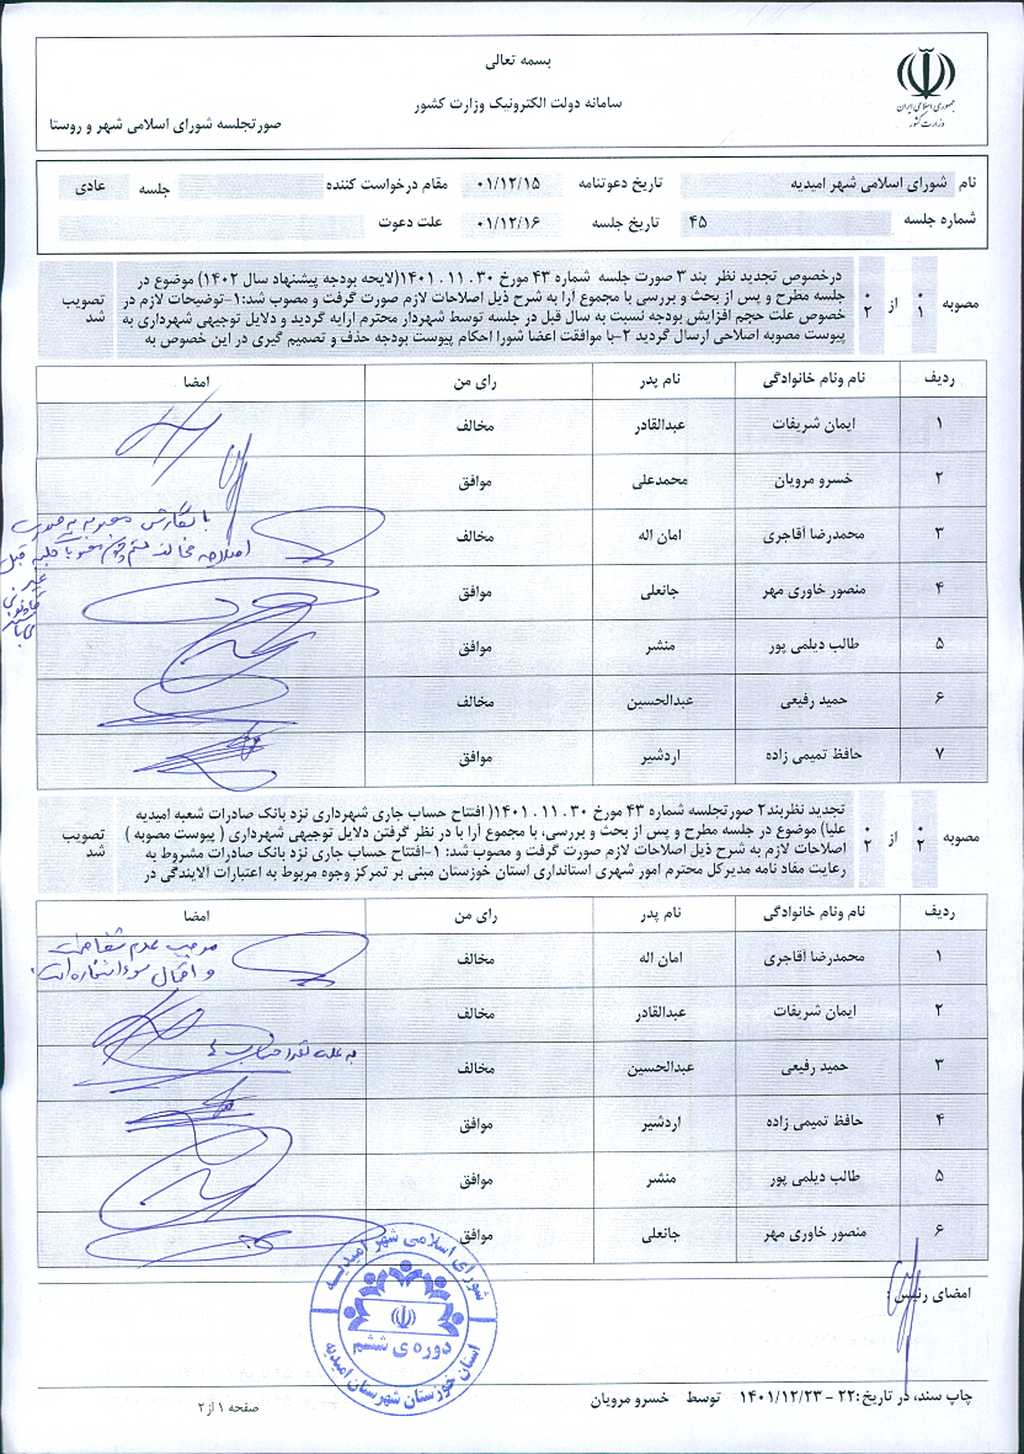 بسمه تعالی
سامانه دولت الکترونیک وزارت کشور
صورتجلسه شورای اسلامی شهر و روستا
جمهوری اسلامی ایران
وزارت کشور
نام شورای اسلامی شهر امیدیه تاریخ دعوتنامه ۰۱/۱۲/۱۵ مقام درخواست کننده جلسه عادی
شماره جلسه ۴۵ تاریخ جلسه ۰۱/۱۲/۱۶ علت دعوت
مصوبه ۰۱ از ۰۲
درخصوص تجدید نظر بند ۳ صورت جلسه شماره ۴۳ مورخ ۳۰ . ۱۱ . ۱۴۰۱(لایحه بودجه پیشنهاد سال ۱۴۰۲) موضوع در
جلسه مطرح و پس از بحث و بررسی با مجموع آرا به شرح ذیل اصلاحات لازم صورت گرفت و مصوب شد:۱-توضیحات لازم در
خصوص علت حجم افزایش بودجه نسبت به سال قبل در جلسه توسط شهردار محترم ارایه گردید و دلایل توجیهی شهرداری به
پیوست مصوبه اصلاحی ارسال گردید ۲-با موافقت اعضا شورا احکام پیوست بودجه حذف و تصمیم گیری در این خصوص به
تصویب شد
ردیف نام ونام خانوادگی نام پدر رای من امضا
۱ ایمان شریفات عبدالقادر مخالف
۲ خسرو مرویان محمدعلی موافق
۳ محمدرضا آقاجری امان اله مخالف
با نگارش مصوبه به صورت
اصلاحیه مخالف هستم چون مصوبات جلسه قبل
غیر
قانونی
می باشد
۴ منصور خاوری مهر جانعلی موافق
۵ طالب دیلمی پور منشر موافق
۶ حمید رفیعی عبدالحسین مخالف
۷ حافظ تمیمی زاده اردشیر موافق
مصوبه ۰۲ از ۰۲
تجدید نظربند۲ صورتجلسه شماره ۴۳ مورخ ۳۰ . ۱۱ . ۱۴۰۱( افتتاح حساب جاری شهرداری نزد بانک صادرات شعبه امیدیه
علیا) موضوع در جلسه مطرح و پس از بحث و بررسی، با مجموع آرا با در نظر گرفتن دلایل توجیهی شهرداری ( پیوست مصوبه )
اصلاحات لازم به شرح ذیل اصلاحات لازم صورت گرفت و مصوب شد: ۱-افتتاح حساب جاری نزد بانک صادرات مشروط به
رعایت مفاد نامه مدیرکل محترم امور شهری استانداری استان خوزستان مبنی بر تمرکز وجوه مربوط به اعتبارات الایندگی در
تصویب شد
ردیف نام ونام خانوادگی نام پدر رای من امضا
۱ محمدرضا آقاجری امان اله مخالف
موجب عدم شفافیت
و احتمال سوء استفاده است.
۲ ایمان شریفات عبدالقادر مخالف
۳ حمید رفیعی عبدالحسین مخالف
به علت تعدد حساب ها
۴ حافظ تمیمی زاده اردشیر موافق
۵ طالب دیلمی پور منشر موافق
۶ منصور خاوری مهر جانعلی موافق
شورای اسلامی شهر امیدیه
دوره ی ششم
استان خوزستان شهرستان امیدیه
امضای رئیس :
چاپ سند، در تاریخ:۲۲ - ۱۴۰۱/۱۲/۲۳ توسط خسرو مرویان
صفحه ۱ از ۲